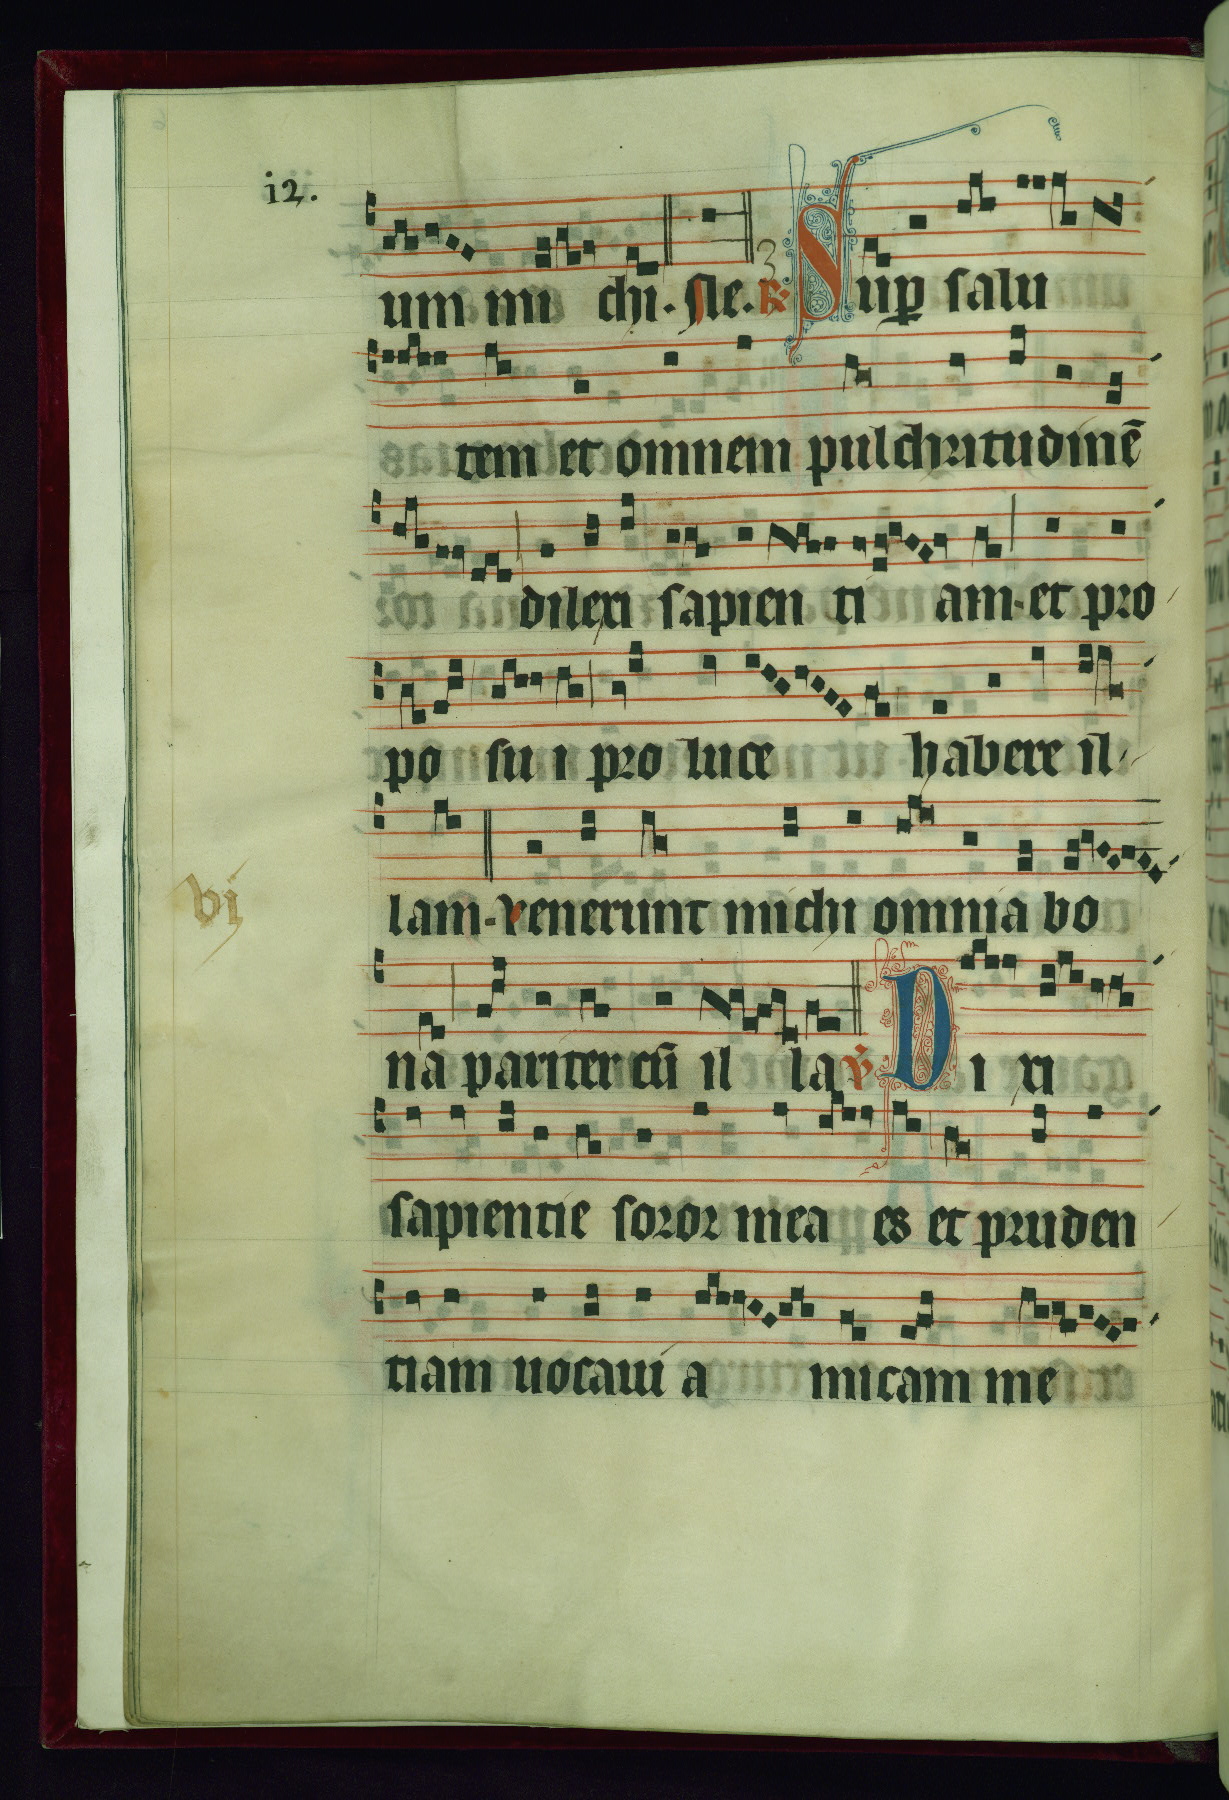 12.
um mi chi. Ne. ℟ 3 Sup salu
tem et omnem pulchritudinē
dilexi sapien ti am. et pro
po su i pro luce habere il
lam. Venerunt michi omnia bo
vi
na pariter cū il la ℣ Di xi
sapientie soror mea es et pruden
tiam uocaui a micam me